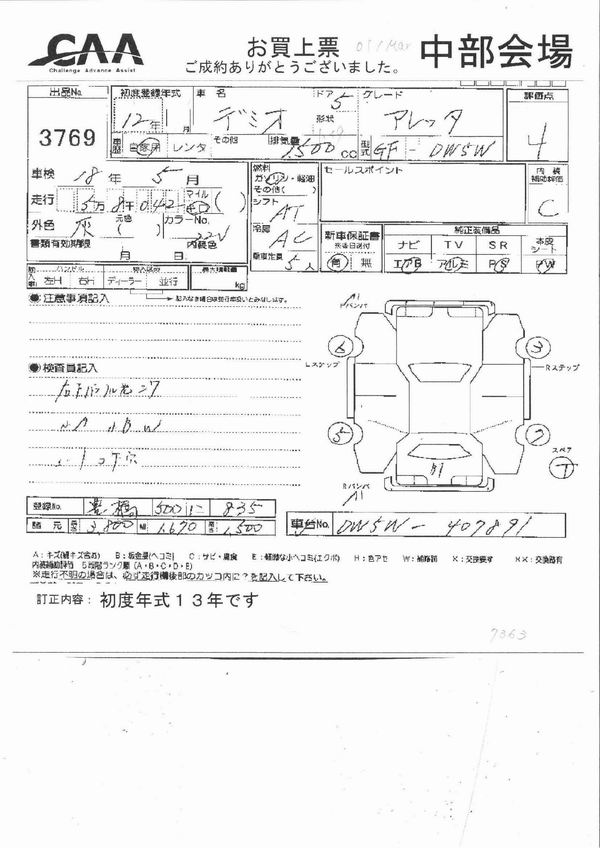 CAA
Challenge Advance Assist
お買上票
ご成約ありがとうございました。
中部会場
出品No.
3769
初度登録年式 車名 ドア グレード 評価点
12年 月 デミオ 5 アレッタ 4
形状
車歴 自家用 レンタ その他 排気量 1,500cc 型式 GF-DW5W
車検 18年 5月
燃料 ガソリン・軽油 その他( )
セールスポイント
内装補助評価
C
走行 5万8千042 マイル ( )
シフト AT
外色 灰 元色( ) カラーNo. 22V
冷房 AC
新車保証書
純正装備品
ナビ TV SR 本皮シート
書類有効期限 月 日 内装色
乗車定員 5人
有 無 エアB アルミ PS PW
輸入車 ハンドル 左H 右H ディーラー 並行 最大積載量 kg
●注意事項記入
Fバンパ
A1
Lステップ 6 3 Rステップ
●検査員記入
5 7 スペア T
Rバンパ
A1
登録No. 豊橋 500 に 835
諸元 長さ 3,800 幅 1,670 高さ 1,500
車台No. DW5W-407891
A:キズ(線キズ含む) B:板金費(ヘコミ) C:サビ・腐食 E:軽微な小ヘコミ(エクボ) H:色アセ W:補修跡 X:交換要す XX:交換跡有
内装補助評価 5段階ランク順(A・B・C・D・E)
※走行不明の場合は、必ず走行欄後部のカッコ内に?を記入して下さい。
訂正内容: 初度年式13年です
7363